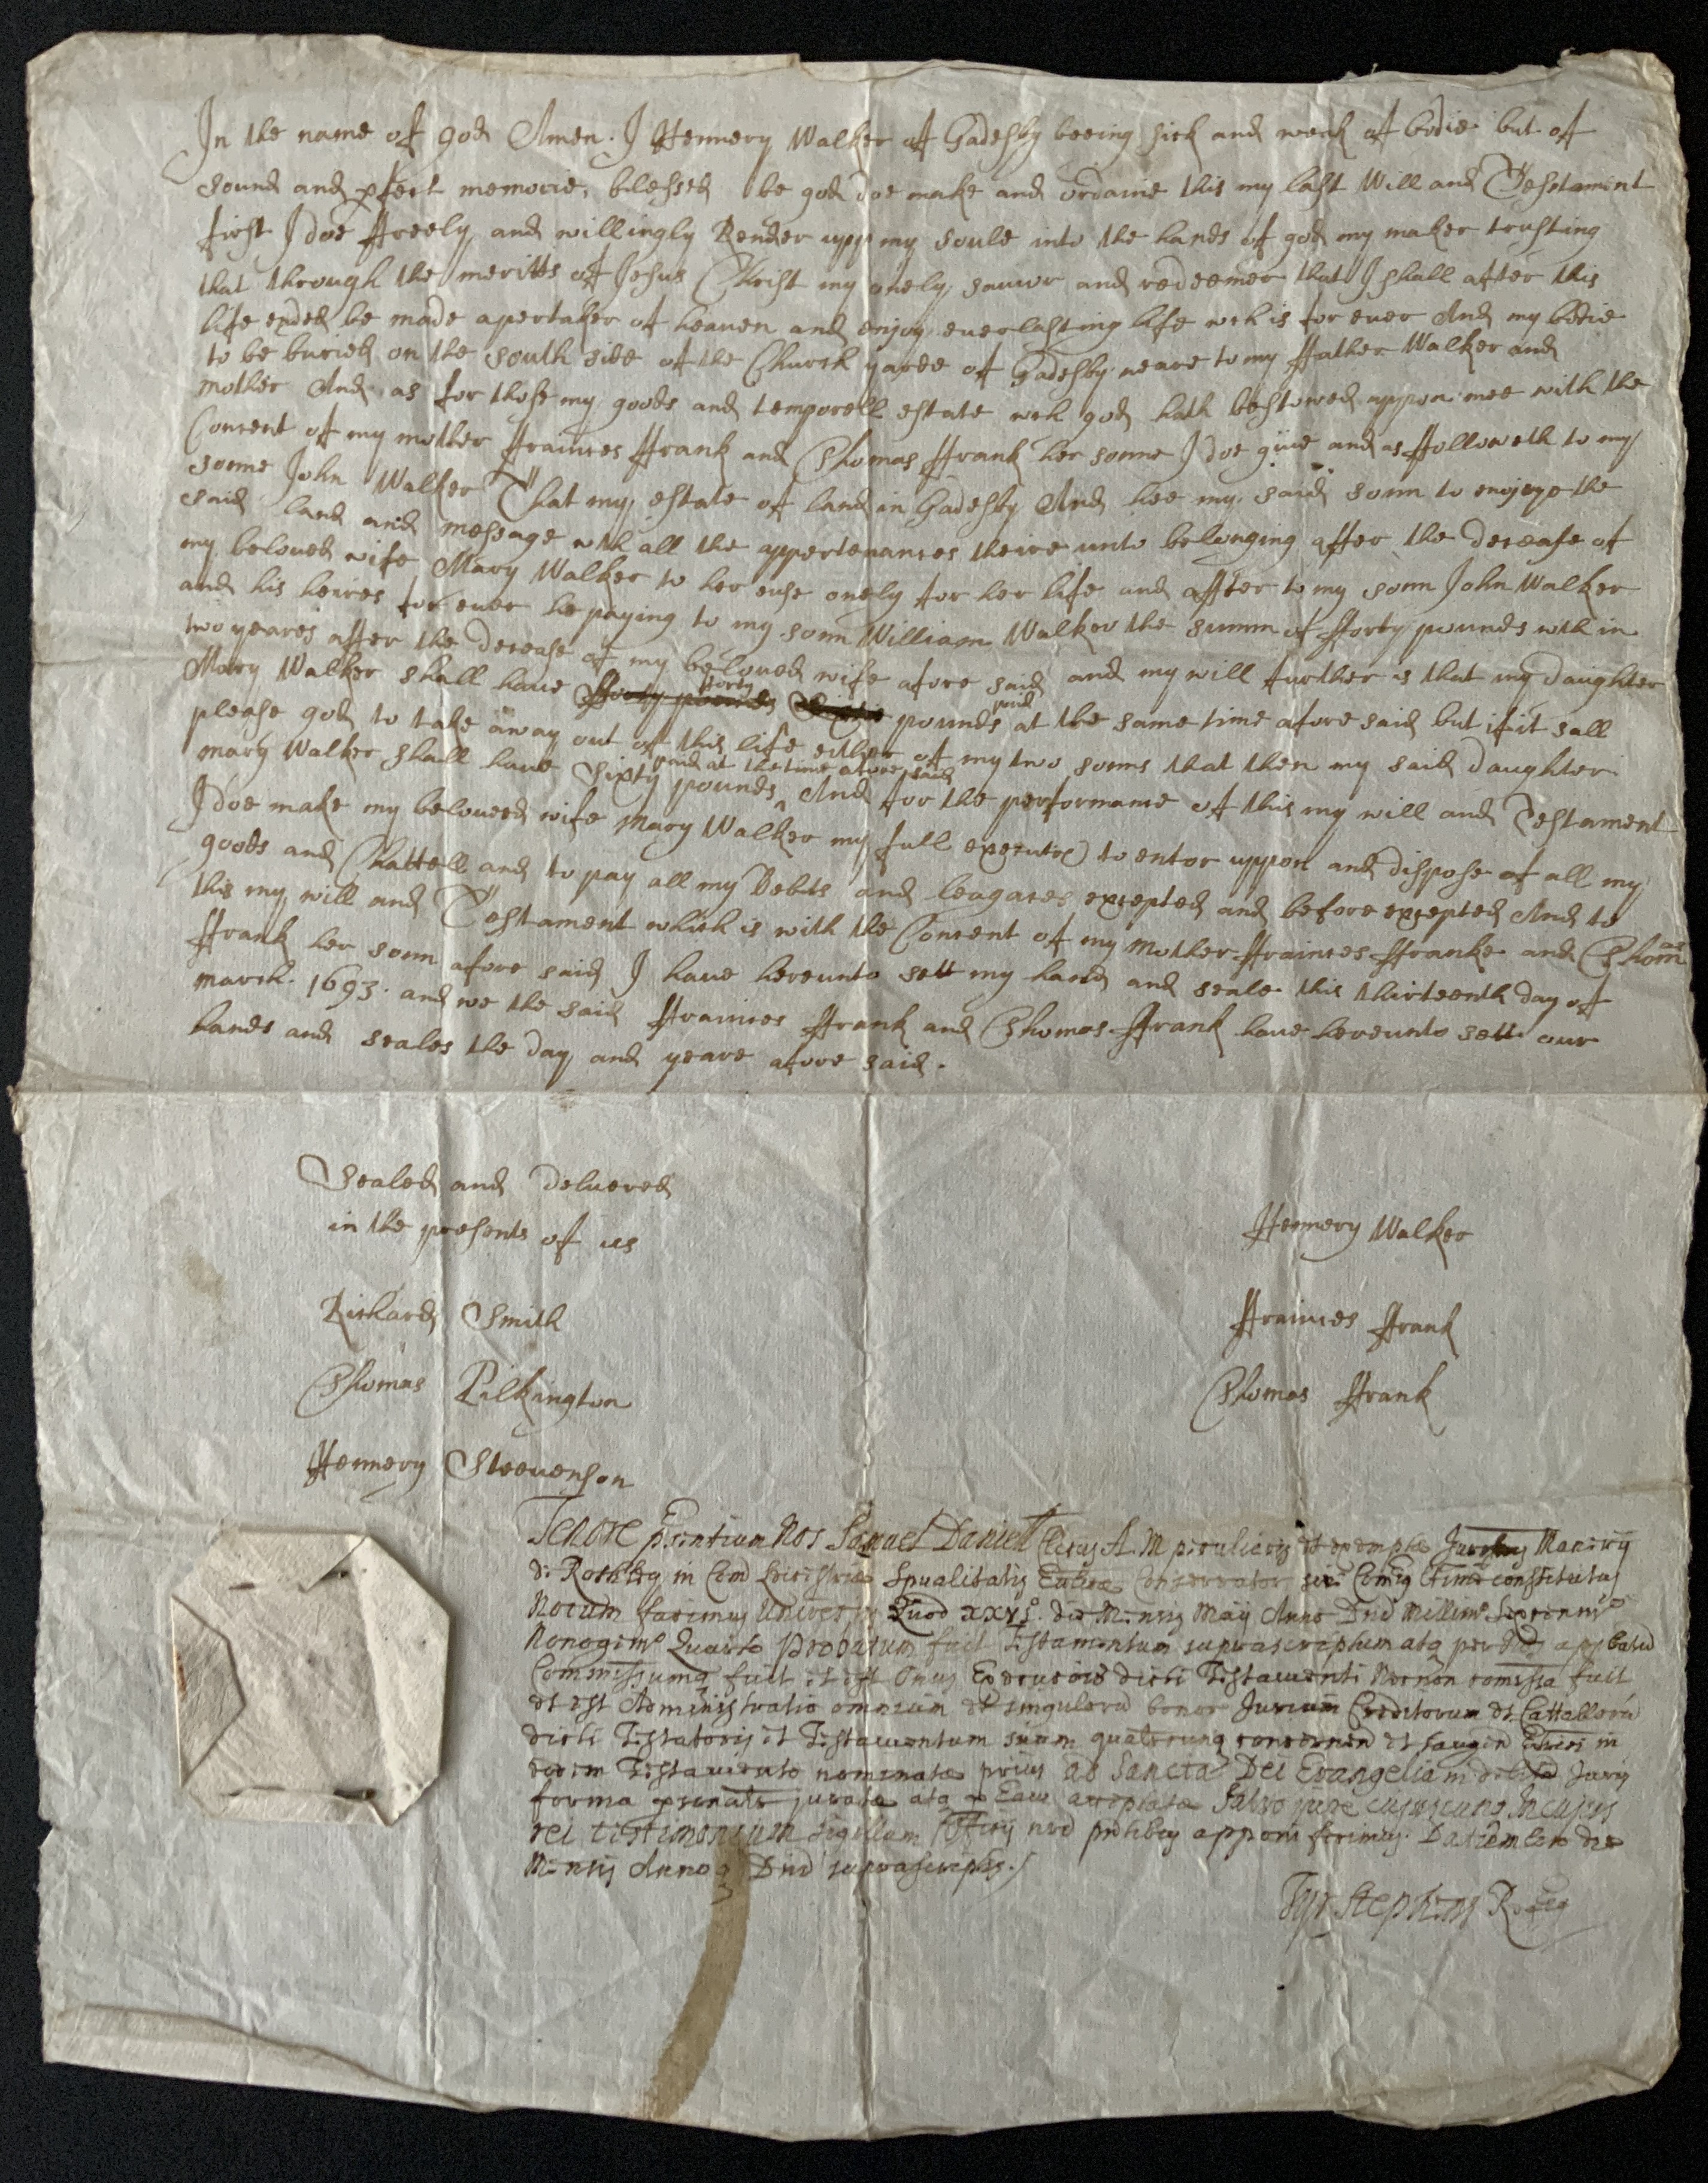 In the name of god Amen. I Hennery Walker of Gadesby beeing sick and weak of bodie but of
sound and pfect memorie, blessed be god doe make and ordaine this my last Will and Testamint
first I doe ffreely and willingly Render upp my soule into the hands of god my maker trusting
that through the meritts of Jesus Christ my onely sauior and redeemer that I shall after this
life ended be made apertaker of heauen and enjoy euerlasting life wch is for euer And my bodie
to be buried on the south side of the Church yarde of Gadesby neare to my ffather Walker and
mother And as for those my goods and temporell estate wch god hath bestowed uppon mee with the
Consent of my mother ffrainces ffrank and Thomas ffrank her sonne I doe giue and as ffolloweth to my
sonne John Walker That my estate of land in Gadesby And hee my said sonn to enjoye the
said land and message with all the appertenances theire unto belonging affter the decease of
my beloued wife Mary Walker to her euse onely for her life and affter to my sonn John Walker
and his heires for euer he paying to my sonn William Walker the summ of fforty pounds with in
two yeares affter the decease of my beloued wife afore said and my will further is that my daughter
Mary Walker shall haue fforty pounds fforty pounds paid at the same time afore said but if it sall
please god to take away out of this life either of my two sonns that then my said daughter
mary Walker shall haue sixty pounds paid at the time afore said And for the performance of this my will and Testament
I doe make my beloueed wife Mary Walker my full executrs to enter uppon and dispose of all my
goods and Chattell and to pay all my Debits and leagaces excepted and before excepted And to
this my will and Testament which is with the Consent of my mother ffrainces ffranke and Thomas
ffrank her sonn afore said I haue hereunto sett my hand and seale this thirteenth day of
march. 1693. and we the said ffrainces ffrank and Thomas ffrank haue hereunto sett our
hands and seales the day and yeare afore said.
Sealed and deluered
in the presents of us
Hennery Walker
Richard Smith
ffrainces ffrank
Thomas Pilkington
Thomas ffrank
Hennery Steeuenson
Tenore prsentium Nos Samuel Daniell Clericus A. M peculiaris et exempte Jurisdnis Manerij
de Rothley in Com Leicestriæ Spualitatis Custos Conservator sive Comis ltime constitutus
Notum facimus Universis Quod xxvjo. die Mensis Maij Anno Dnd Millimo Sexcenmo
Nonogimo Quarto Probatum fuit Testamentum suprascriptum atq per approbatu
Commissumq fuit et est Onus Execucois dicti Testamenti Necnon comissa fuit
et est Administratio omnium et singuloru bonor Jurium Creditorum et Cattalloru
dicti Testatoris et Testamentum suum qualitercunq concernen in
eodem Testamento nominatæ prius ad Sancta Dei Evangelia in debita Juris
forma psonatr juratæ atq p Eam acceptatæ Salvo jure cujuscunq In cujus
rei testimonium sigillum Officij nrd prdtibus apponi fecimus. Dat die
Mensis Annoq Dnd suprascriptis./
Tyr Stephens Regreg